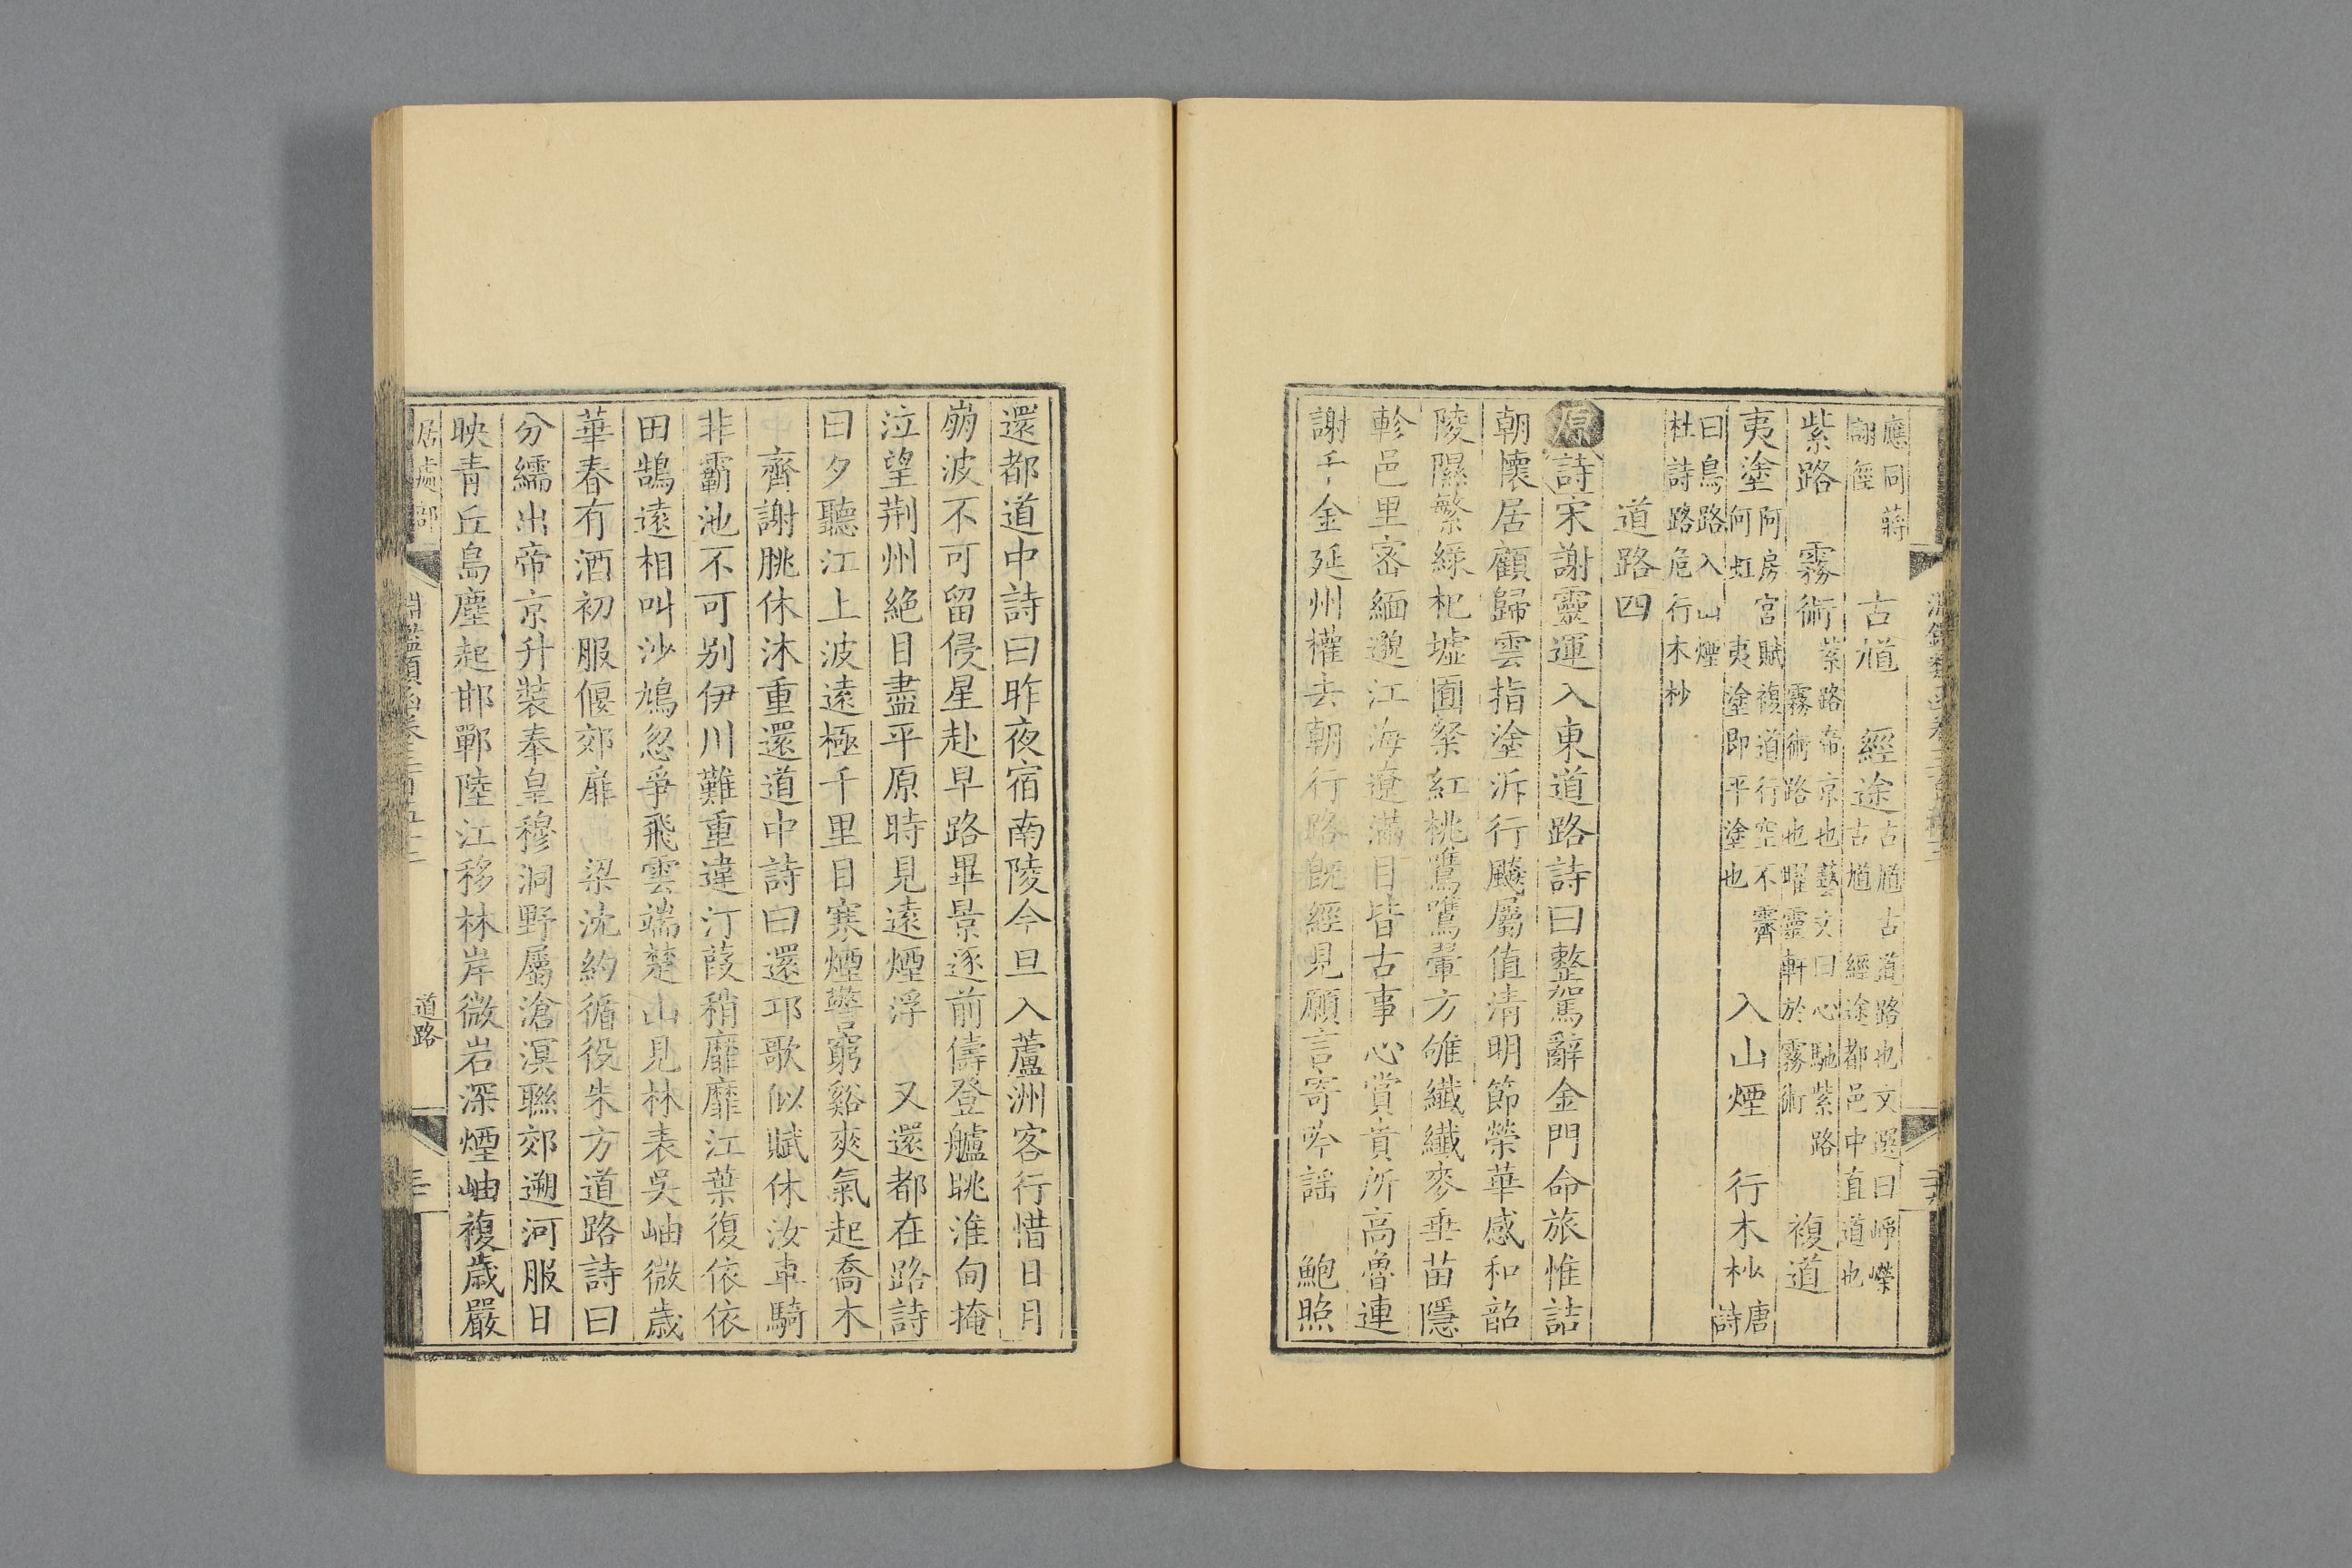 應同蔣
詡徑
古馗　經途
古馗古道路也文選曰崢嶸
古馗　經途都邑中直道也
紫路　霧術
紫路帝京也藝文曰心馳紫路
霧術路也曜靈軒於霧術
複道
夷塗
阿房宮賦複道行空不霽
何虹　夷塗即平塗也
入山煙　行木杪
唐
詩
曰鳥路入山煙
杜詩路危行木杪
道路四
原詩宋謝靈運入東道路詩曰整駕辭金門命旅惟詰
朝懷居顧歸雲指塗泝行飈屬值清明節榮華感和韶
陵隰繁綠杞墟囿粲紅桃鷕鷕翬方雊纖纖麥垂苗隱
軫邑里密緬邈江海遼滿目皆古事心賞貴所高魯連
謝千金延州權去朝行路旣經見願言寄吟謠　鮑照
還都道中詩曰昨夜宿南陵今旦入蘆洲客行惜日月
崩波不可留侵星赴早路畢景逐前儔登艫眺淮甸掩
泣望荆州絕目盡平原時見遠煙浮　又還都在路詩
曰夕聽江上波遠極千里目寒煙警窮谿爽氣起喬木
齊謝朓休沐重還道中詩曰還邛歌似賦休汝車騎
非霸池不可别伊川難重違汀葭稍靡靡江葉復依依
田鵠遠相叫沙鴇忽爭飛雲端楚山見林表吳岫微歲
華春有酒初服偃郊扉　梁沈約循役朱方道路詩曰
分繻出帝京升裝奉皇穆洞野屬滄溟聯郊遡河服日
映青丘島塵起邯鄲陸江移林岸微岩深煙岫複歲嚴
居處部
淵鑑類函卷三百五十二
道路